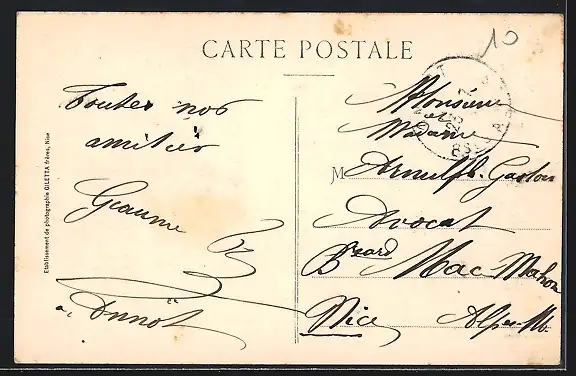 10
CARTE POSTALE
Toutes nos
amitiés
Geaume
à Annot
Etablissement de photographie GILETTA frères, Nice
Monsieur
et
Madame
M Arnulph. Gaston
Avocat
Bard Mac Mahon
Nice Alpes-M.